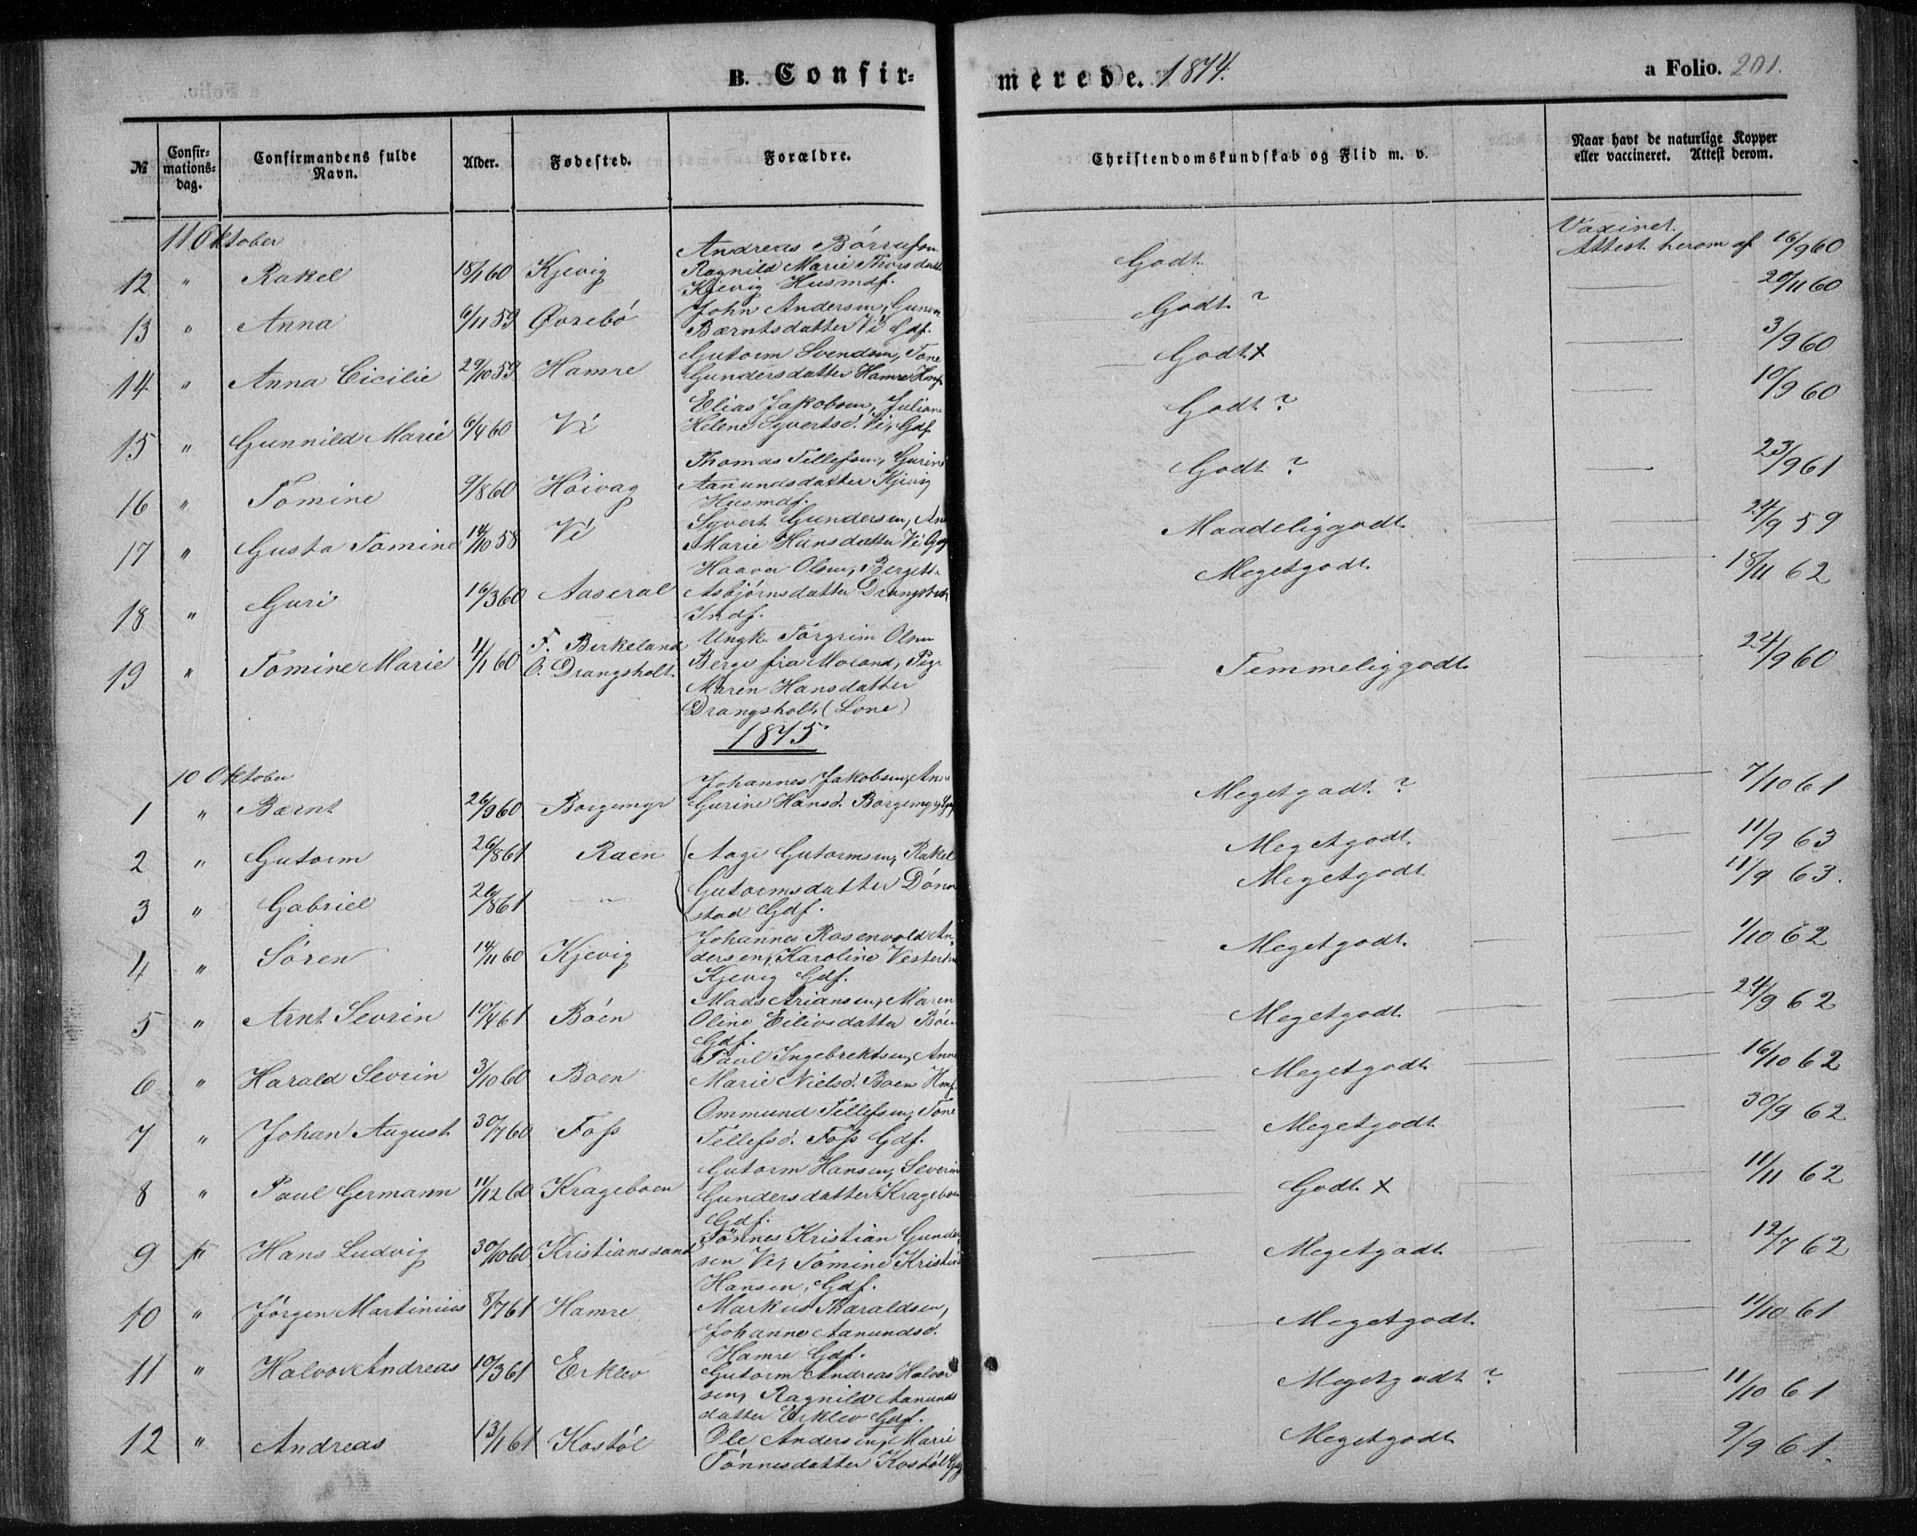 B. Confir-
merede. 1874.
a Folio. 201.
№
Confir-
mations-
dag.
Confirmandens fulde
Navn.
Alder.
Fødested.
Forældre.
Christendomskundskab og Flid m. v.
Naar havt de naturlige Kopper
eller vaccineret. Attest derom.
11 Oktober
Andreas
12 " Rakel 18/1 60 Kjevig
Ragnild Marie
Kjevig Husmdf.
Godt
Vaxinet.
Attest herom af 16/9 60
13 " Anna 6/11 59 Øvrebö
John Andersen,
Bærntsdatter Vé Gdf.
Godt ?
20/11 60
14 " Anna Cicilie 29/10 59 Hamre
Gutorm Svendsen, Tone
Gundersdatter Hamre
Godt x
3/9 60
15 " Gunnild Marie 6/4 60 Vé
Elias Jakobsen, Juliane
Helene Syvertsd. Ve, Gdf.
Godt ?
10/9 60
16 " Tomine 9/8 60 Höivag
Thomas Tellefsen, Gurine
Aanundsdatter Kjevig
Husmdf.
Godt ?
23/9 61
17 " Gusta Tomine 14/10 58 Vé
Syvert Gundersen,
Marie Hansdatter Ve,
Maadeliggodt
24/9 59
18 " Guri 16/3 60 Aaseral
Haaver Olsen, Bergette
Asbjörnsdatter
Indf.
Megetgodt
18/11 62
19 " Tomine Marie 1/1 60
F. Birkeland
O. Drangsholt.
Ungk. Torgrim Olsen
Berge fra Moland, Pige
Maren Hansdatter
Drangsholt (Lone)
Temmeliggodt
24/9 60
1875
10 Oktober
1 " Bærnt 26/9 60 Borgemyr
Johannes Jakobsen,
Gurine Hansd. Borgemyr
Megetgodt ?
7/10 61
2 " Gutorm 26/8 61 Raen
Aage Gutormsen, Rakel
Megetgodt.
11/9 63
3 " Gabriel 26/8 61 - " -
Gutormsdatter Döne
stad Gdf.
Megetgodt
11/9 63.
4 " Sören 14/11 60 Kjevig
Johannes Rosenvold An-
dersen, Karoline
Kjevig Gdf.
Megetgodt.
1/10 62
5 " Arnt Sevrin 10/4 61 Böen
Mads Ariansen, Maren
Oline Eilivsdatter Böen
Gdf.
Megetgodt
24/9 62
6 " Harald Sevrin 3/10 60 Boen
Paul Ingebrektsen, Anne
Marie Nielsd. Boen Hmf.
Megetgodt
16/10 62
7 " Johan August 30/7 60 Foss
Ommund Tellefsen, Tone
Tellefsd. Foss Gdf.
Megetgodt
30/9 62
8 " Paul Germann 11/12 60 Krageboen
Gutorm Hansen, Severine
Gundersdatter Krageboen
Gdf.
Godt x
11/11 62
9 Hans Ludvig 30/10 60 Kristianssand
Tönnes Kristian Gunder-
sen Ve, Tomine
Hansen, Gdf.
Megetgodt
12/7 62
10 " Jörgen Martinius 8/7 61 Hamre
Markus
Johanne Aanundsd.
Hamre Gdf.
Megetgodt.
11/10 61
11 " Halvor Andreas 10/3 61 Erklev
Gutorm Andreas Halvor
sen, Ragnild Aanunds
datter Erklev Gdf.
Megetgodt ?
11/10 61
12 " Andreas 13/1 61 Kostöl
Ole Andersen, Marie
Tönnesdatter Kostöl
Megetgodt
9/9 61.